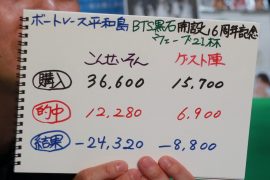 ボートレース平和島 BTS黒石開設16周年記念
ウェーブ21杯
こんせいそん ゲスト陣
購入 36,600 15,700
的中 12,280 6,900
結果 -24,320 -8,800